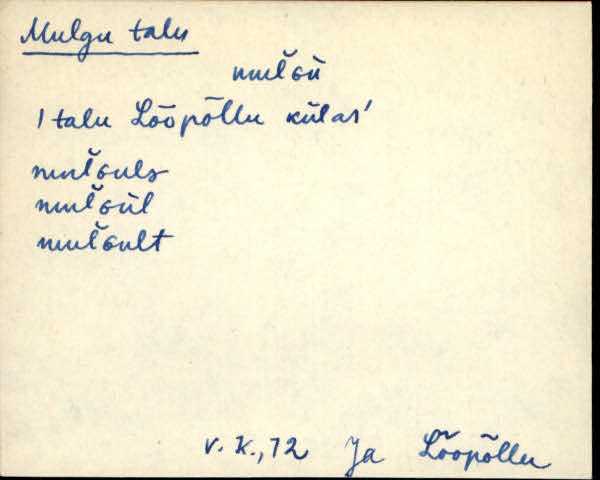 Mulgu talu
mulˇGù
'talu Lõopõllu külas'
mulˇGuls
mulˇGùl
mulˇGult
V. K., 72 Ja Lõopõllu